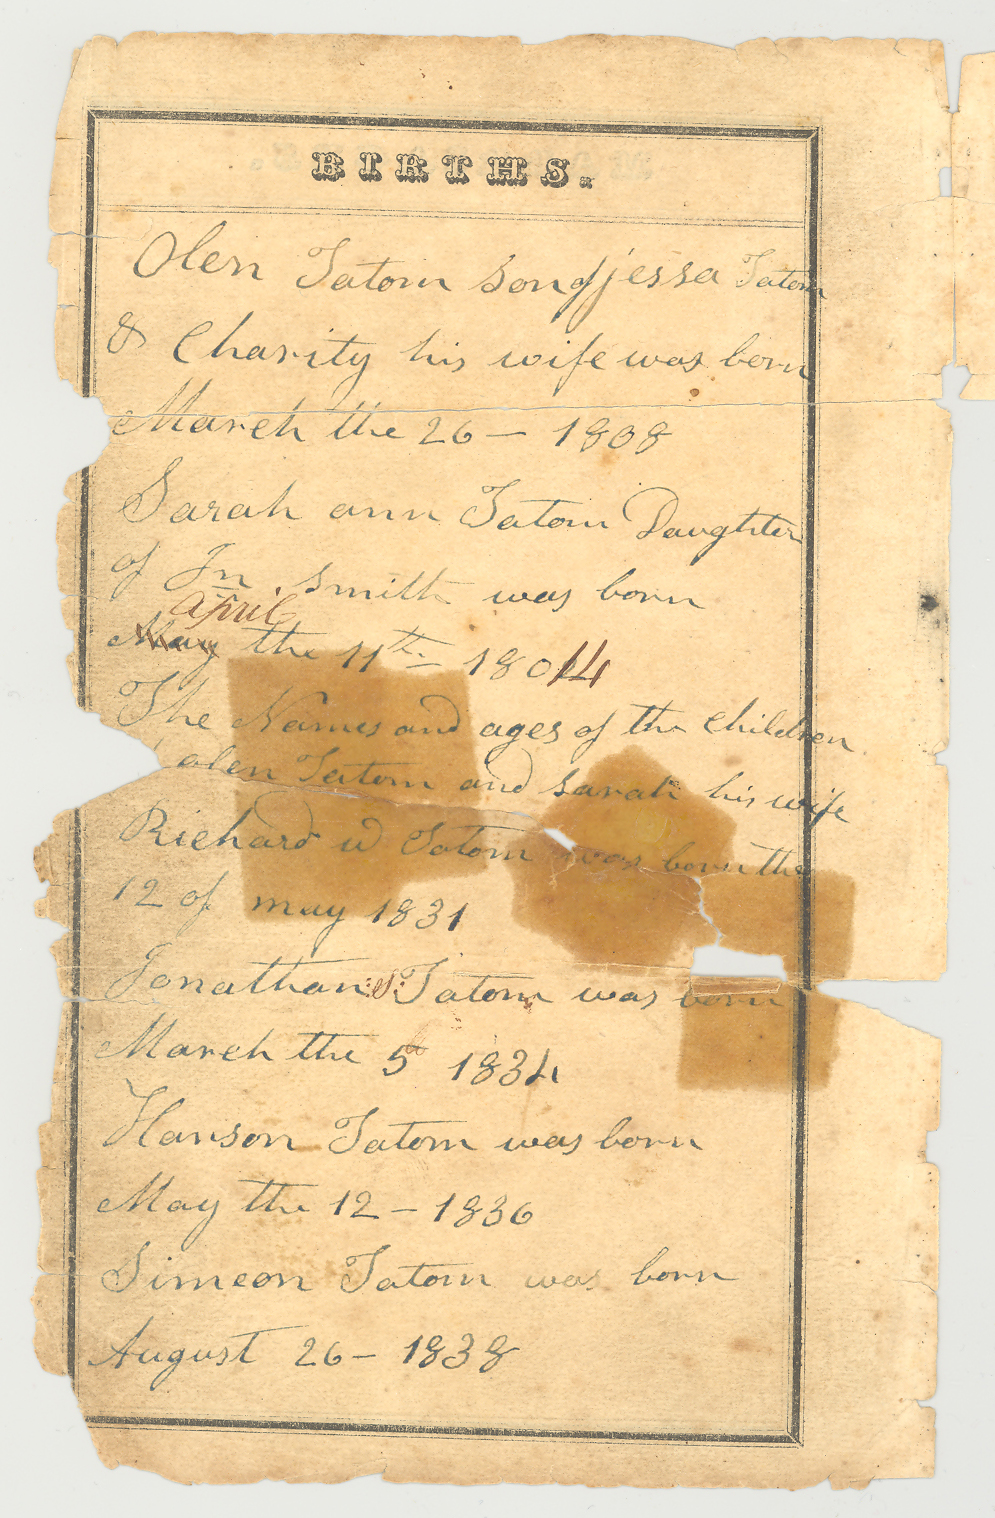 BIRTHS.
Olen Tatom Son of jessa Tatom
& Charity his wife was born
March the 26 – 1808
Sarah ann Tatom Daughter
of Jn Smith was born
April
May the 11th – 1814
The Names and ages of the Children
olen Tatom and Sarah his wife
Richard W Tatom was born the
12 of may 1831
Jonathan :S: Tatom was born
March the 5 1834
Hanson Tatom was born
May the 12 – 1836
Simeon Tatom was born
August 26 – 1838